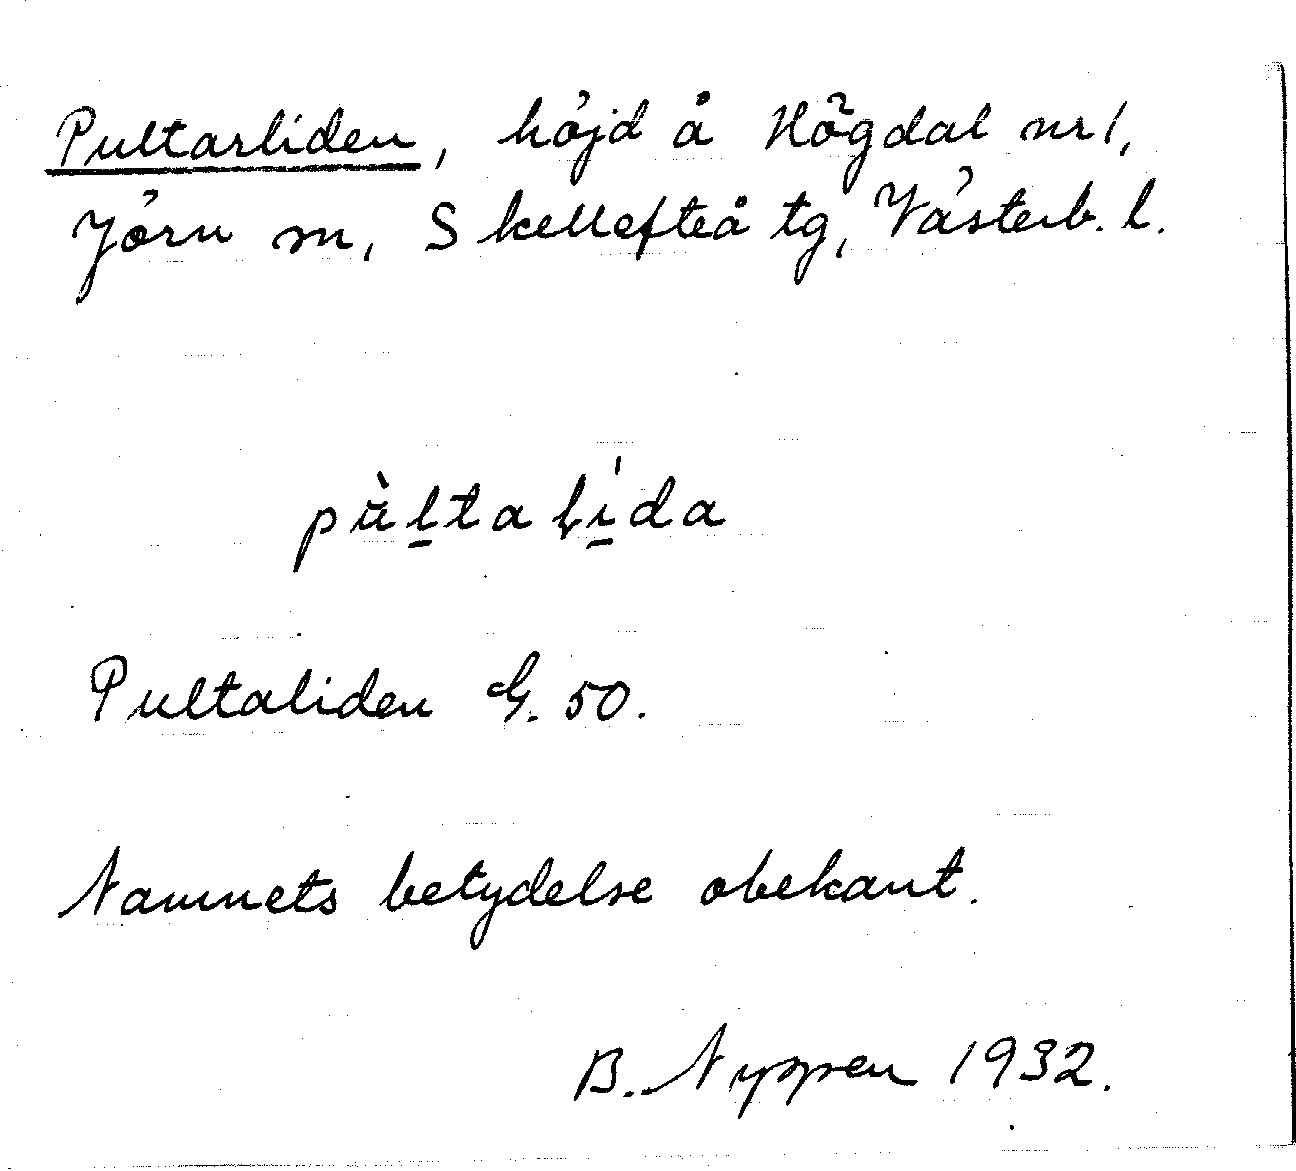 Pultarliden, höjd å Högdal nr 1,
Jörn sn, Skellefteå tg, Västerb. l.
pùltalida
Pultaliden G. 50.
Namnets betydelse obekant.
B. Nyppen 1932.